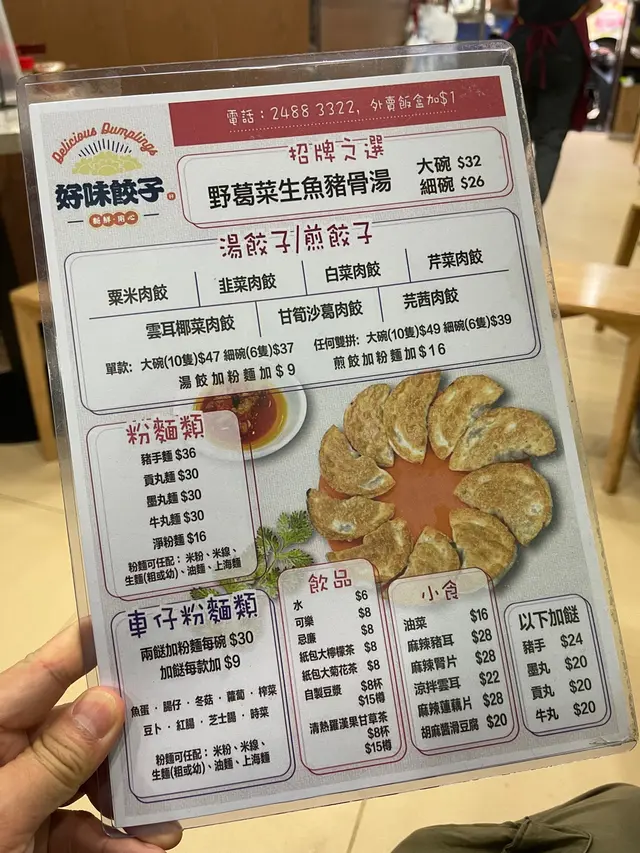 電話：2488 3322, 外賣飯盒加$1
Delicious Dumplings
好味餃子
新鮮·用心
招牌之選
野葛菜生魚豬骨湯
大碗 $32
細碗 $26
湯餃子/煎餃子
粟米肉餃 韭菜肉餃 白菜肉餃 芹菜肉餃
雲耳椰菜肉餃 甘筍沙葛肉餃 芫茜肉餃
單款: 大碗(10隻)$47 細碗(6隻)$37 任何雙拼: 大碗(10隻)$49 細碗(6隻)$39
湯餃加粉麵加$9 煎餃加粉麵加$16
粉麵類
豬手麵 $36
貢丸麵 $30
墨丸麵 $30
牛丸麵 $30
淨粉麵 $16
粉麵可任配：米粉、米線、
生麵(粗或幼)、油麵、上海麵
車仔粉麵類
兩餸加粉麵每碗 $30
加餸每款加 $9
魚蛋·腸仔·冬菇·蘿蔔·榨菜
豆卜·紅腸·芝士腸·時菜
粉麵可任配：米粉、米線、
生麵(粗或幼)、油麵、上海麵
飲品
水 $6
可樂 $8
忌廉 $8
紙包大檸檬茶 $8
紙包大菊花茶 $8
自製豆漿 $8杯
$15樽
清熱羅漢果甘草茶
$8杯
$15樽
小食
油菜 $16
麻辣豬耳 $28
麻辣腎片 $28
涼拌雲耳 $22
麻辣蓮藕片 $28
胡麻醬滑豆腐 $20
以下加餸
豬手 $24
墨丸 $20
貢丸 $20
牛丸 $20